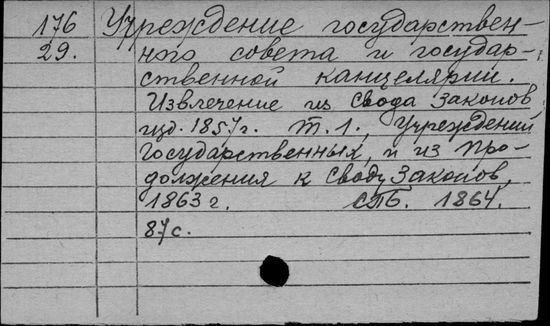 176 Учреждение государствен-
29. ного совета и государ-
ственной канцелярии.
Извлечение из Свода Законов
изд. 1857 г. Т. 1., Учреждений
Государственных, и из Про-
должения к Своду Законов,
1863 г. СПБ. 1864.
87 с.